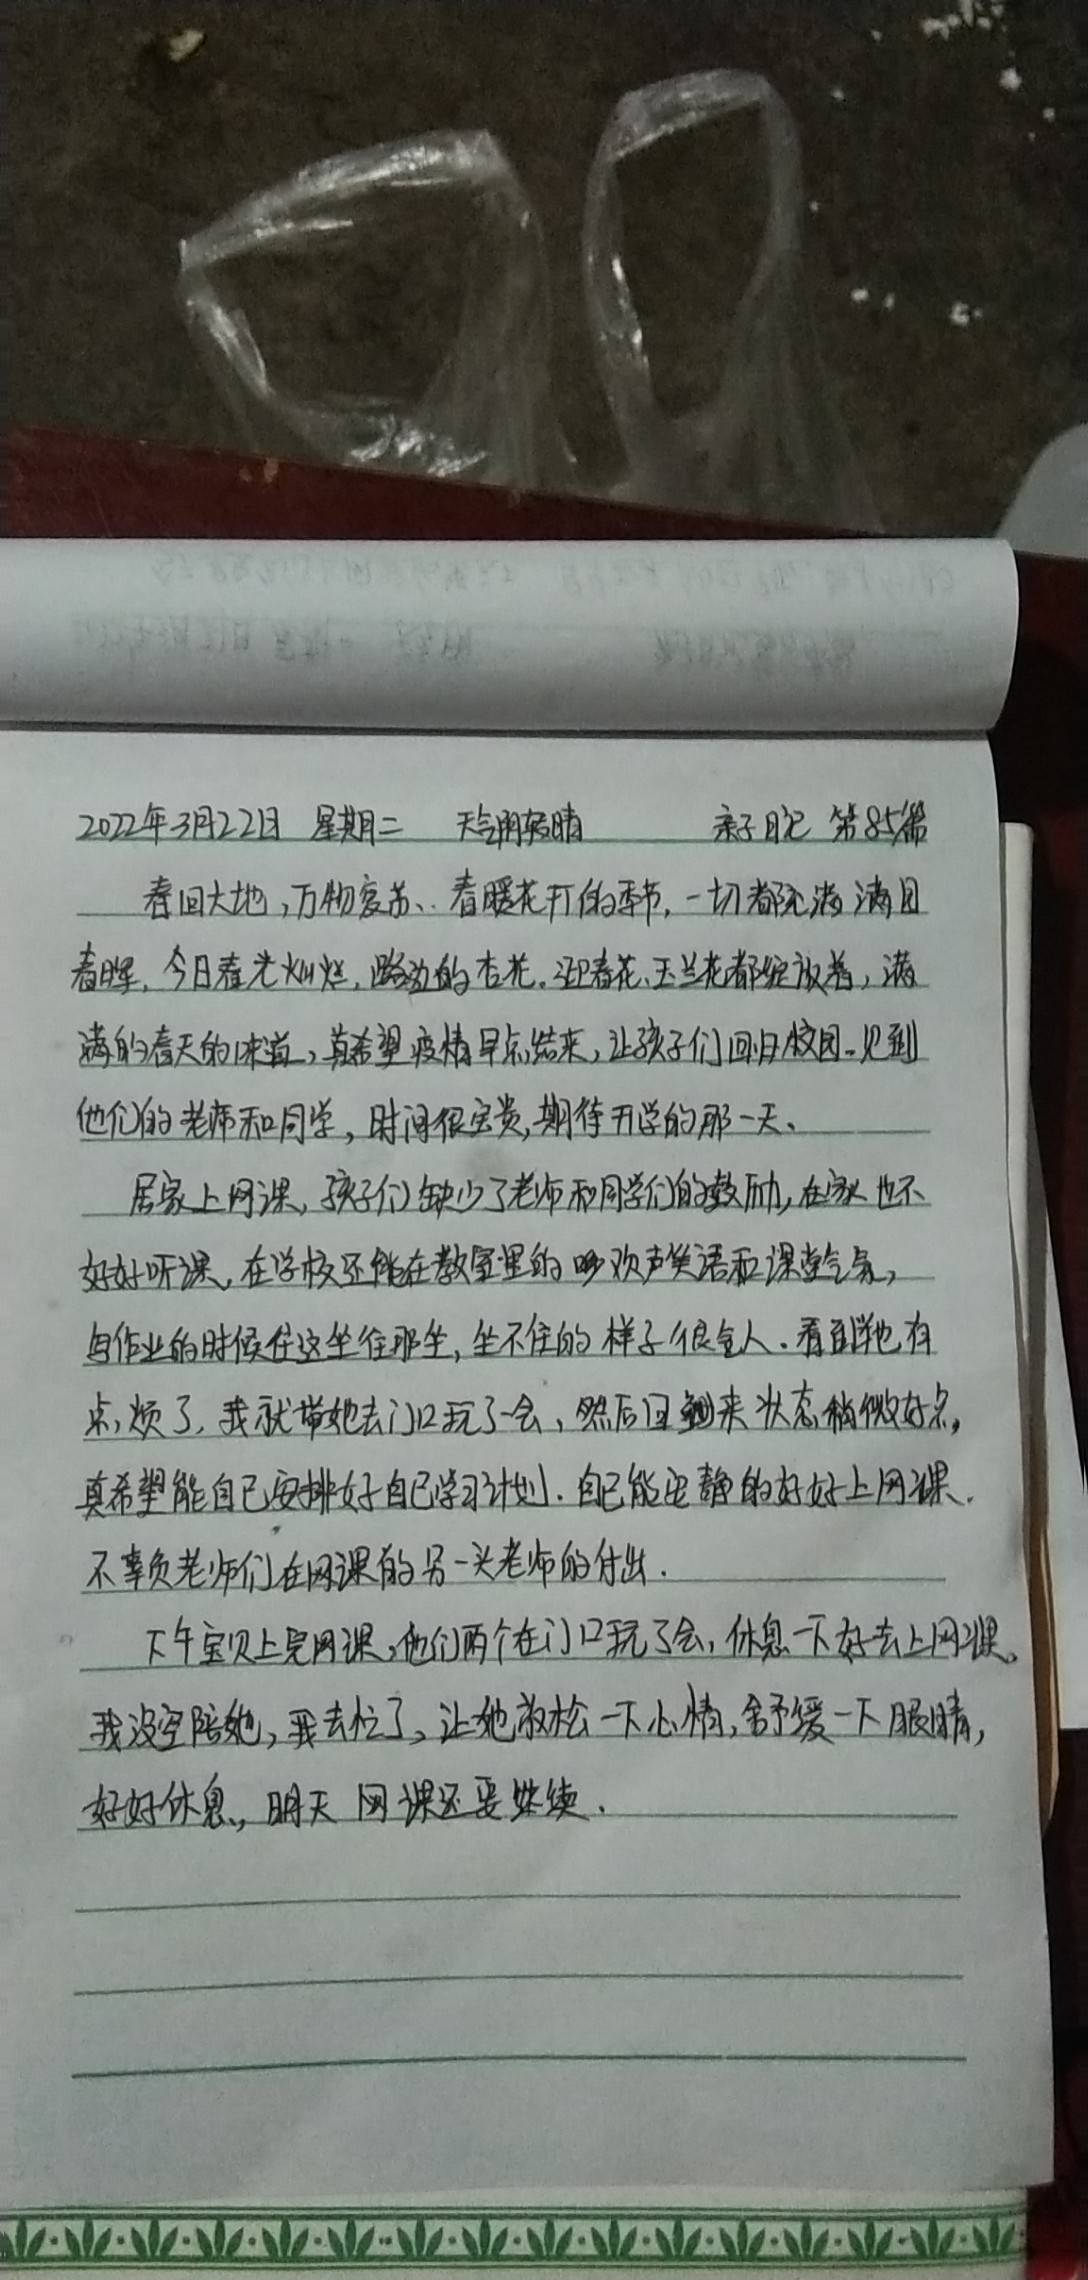 2022年3月22日 星期二 天气阴转晴 亲子日记 第85篇
春回大地,万物复苏、春暖花开的季节,一切都充满满目
春晖,今日春光灿烂,路边的杏花、迎春花、玉兰花都绽放着,满
满的春天的味道,真希望疫情早点结束,让孩子们回归校园、见到
他们的老师和同学,时间很宝贵,期待开学的那一天、
居家上网课,孩子们缺少了老师和同学们的鼓励,在家也不
好好听课,在学校还能在教室里的欢声笑语和课堂气氛,
写作业的时候往这坐往那坐,坐不住的样子很气人、看到她有
点烦了,我就带她去门口玩了会、然后回来状态稍微好点,
真希望能自己安排好自己学习计划.自己能安静的好好上网课.
不辜负老师们在网课的另一头老师的付出.
下午宝贝上完网课,他们两个在门口玩了会,休息一下好去上网课。
我没空陪她,我去忙了,让她放松一下心情,舒缓一下眼睛,
好好休息,明天网课还要继续.